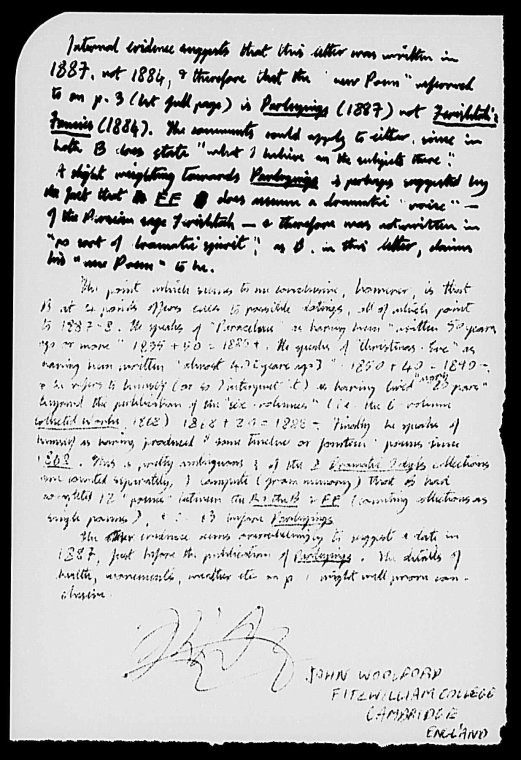 Internal evidence suggests that this letter was written in
1887, not 1884, & therefore that the "new Poem" referred
to on p. 3 (last full page) is Parleyings (1887) not Ferishtah's
Fancies (1884). The comments could apply to either, since in
both B does state "what I believe on the subjects there".
A slight weighting towards Parleyings is perhaps suggested by
the fact that FF does assume a dramatic "voice" —
of the Persian sage Ferishtah — & therefore was not written in
"no sort of dramatic spirit", as B, in this letter, claims
his "new Poem" to be.
The point which seems to me conclusive, however, is that
B at 4 points offers clues to possible datings, all of which point
to 1887-8. He speaks of "Paracelsus" as having been "written 50 years
ago or more" 1835 + 50 = 1885+. He speaks of "Christmas-Eve" as
having been written "almost years ago" 1850 + 40 = 1890-.
& he refers to himself (or so I interpret it) as having lived "20 years"
beyond the publication of the "six volumes" (i.e. the 6-volume
collected works, 1868) 1868 + 20 = 1888-. Finally he speaks of
himself as having produced "some twelve or fourteen" poems since
1868. This is pretty ambiguous & if the 2 Dramatic Idyls collections
are counted separately, I compute (from memory) that B had
completed 12 "poems" between the & FF (counting collections as
single poems), 13 before Parleyings
The other evidence seems overwhelmingly to suggest a date in
1887, just before the publication of Parleyings. The details of
health, movements, weather etc on p 1 might well prove con-
clusive.
JOHN WOOLFORD
FITZWILLIAM COLLEGE
CAMBRIDGE
ENGLAND